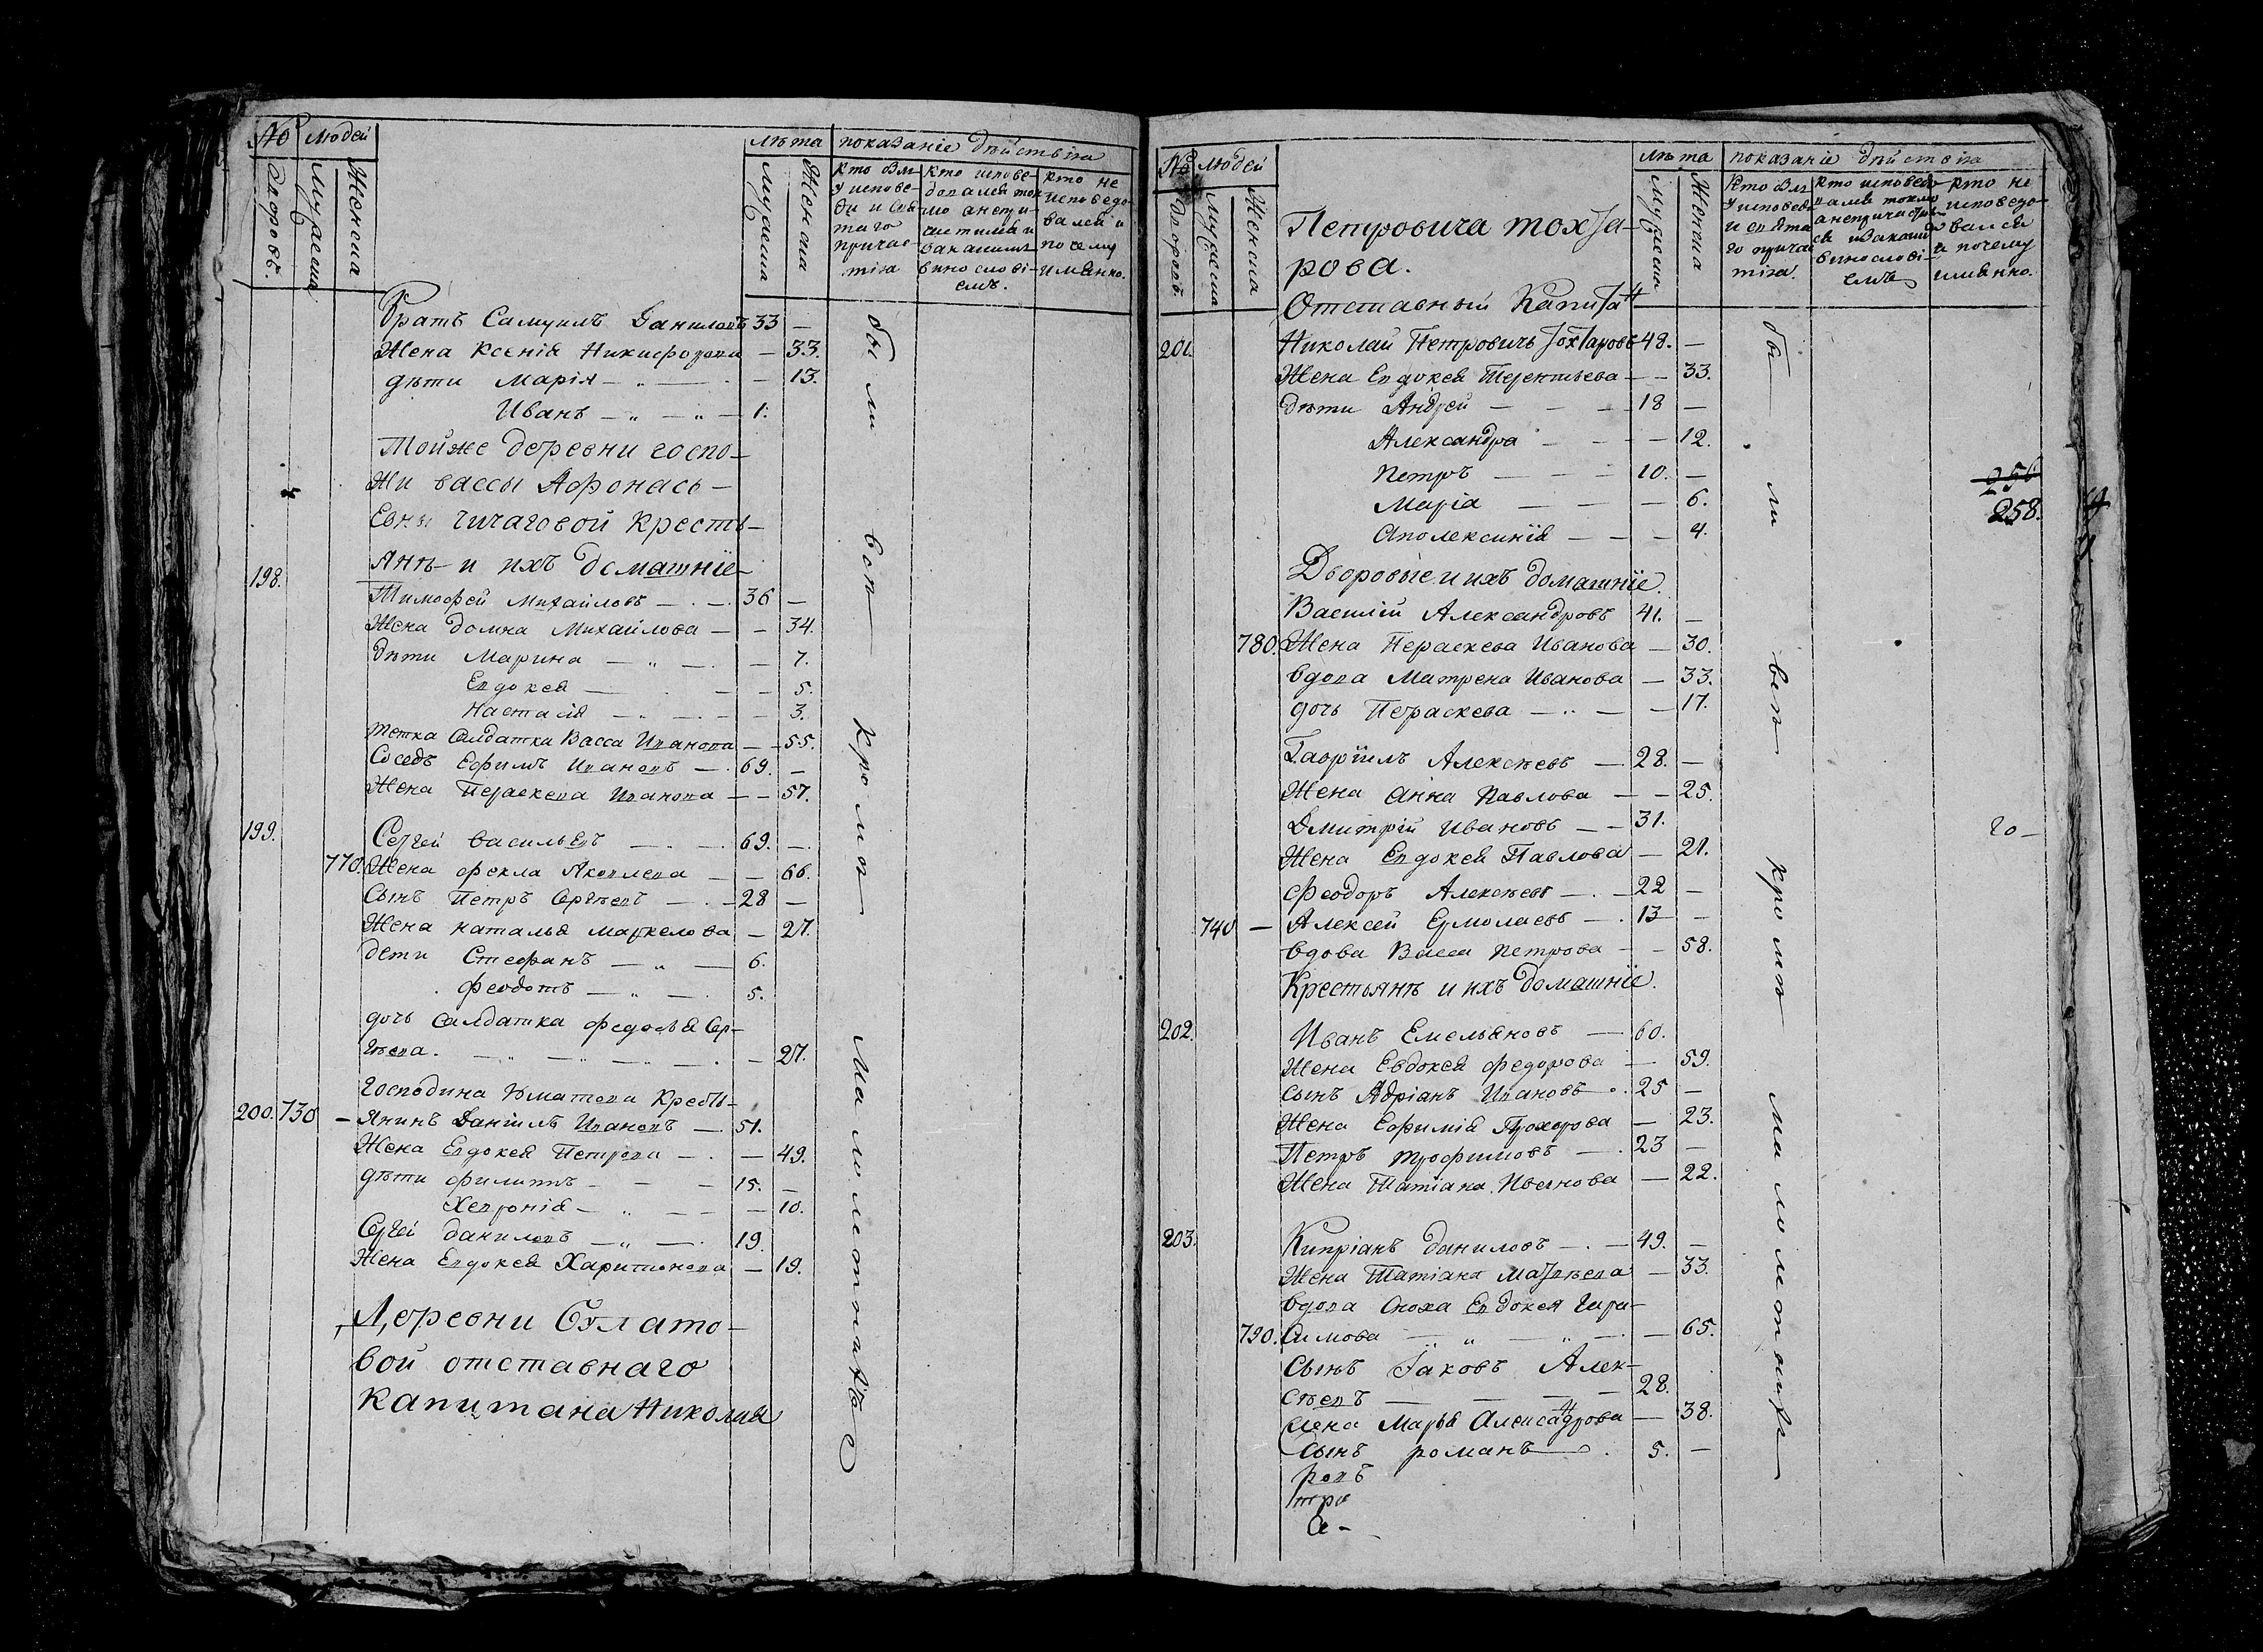 № людей
лѣта показаніе дѣйствіа
дворовъ.
Мужеска
Женска
Мужеска
Женска
кто бы-
у испове-
ди и свя-
таго
причас-
тіа
кто испове-
довался ток
мо а не при-
частился и
за какимъ
винослові-
емъ.
кто не
исповедо-
вался и
по чему
имянно.
братъ Самуилъ Даниловъ 33 —
Жена Ксенія Никифорова — 33.
дѣти Марія — 13.
Иванъ — 1.
Тойже деревни госпо-
жи вассы Афонась-
Евны Чичаговой Кресть-
янѣ и ихъ домашніе
198.
Тимофей Михайловъ — 36 —
Жена домна Михайлова — — 34.
дѣти Марина — — 7.
Евдокея — — 5.
Настасія — — 3.
тетка Салдатка Васса Иванова — — 55.
Соседъ Ефимъ Ивановъ — 69. —
Жена Пераскева Иванова — — 57.
199.
Сергей васильевъ — 69. —
770. Жена фекла Яковлева — — 66.
Сынъ Петръ Сергѣевъ — 28 —
Жена наталья маркелова — 27.
дети Стефанъ — 6.
феодотъ — 5.
дочь Салдатка федосья Сер-
гѣева. — 27.
Господина Кресть-
200. 730 — янинъ Даніилъ Ивановъ — 51.
Жена Евдокея Петрова — 49.
дѣти филиппъ — 15. —
Хевронія — 10.
Сергей даниловъ — 19.
Жена Евдокея Харитонова — 19.
Деревни Болато-
вой отставнаго
Капитана Николая
бы ли всѣ кромѣ малолетныхъ
№ людей
лѣта показаніе дѣйствіа
дворовъ.
Мужеска
Женска
Мужеска
Женска
кто бы-
у исповеди
и свята
го прича
тіа.
кто исповедо
вался токмо
а непричастил-
ся и за каким
винослові-
емъ
кто не
исповедо-
вался
и почему
имянно.
Петровича тохта-
рова.
Отставный Капитан
201. Николай Петровичь Тохтаровъ 48. —
Жена Евдокея Терентьева — — 33.
дѣти Андрей — 18 —
Александра — — 12.
Петръ — 10. —
Маріа — — 6.
Аполексинія — — 4.
250
258.
Дворовые и ихъ домашніе.
Василій Александровъ 41. —
780. Жена Пераскева Иванова — 30.
вдова Матрена Иванова — 33.
дочь Пераскева — — 17.
Гавріилъ Алексѣевъ — 28. —
Жена Анна Павлова — — 25.
Дмитрій Ивановъ — 31.
20 —
Жена Евдокея Павлова — 21.
Феодоръ Алексѣевъ — 22 —
740 — Алексей Ермолаевъ — 13 —
вдова Васса Петрова — — 58.
Крестьянѣ и ихъ домашніе.
202. Иванъ Емельяновъ — 60.
Жена Евдокея федорова — 59.
сынъ Адріанъ Ивановъ 25 —
Жена Ефимія Прохорова — 23.
Петръ трофимовъ — 23 —
Жена Татіана Иванова — 22.
203. Кипріанъ даниловъ — 49. —
Жена Татіана матвѣева — 33.
вдова Сноха Евдокея Гира-
790. Симова — 65.
Сынъ Іаковъ Алек-
сѣевъ — 28.
Жена Марья Алексадрова — 38.
Сынъ романъ 5. —
ровъ
тро
а-
бы ли всѣ кромѣ малолетныхъ